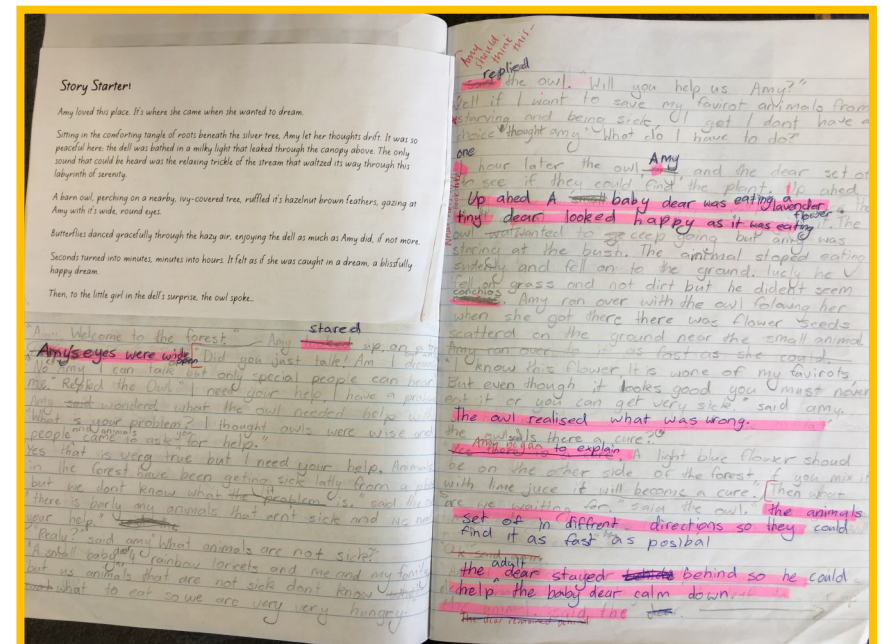 Story Starter!
Amy loved this place. It's where she came when she wanted to dream.
Sitting in the comforting tangle of roots beneath the silver tree, Amy let her thoughts drift. It was so
peaceful here: the dell was bathed in a milky light that leaked through the canopy above. The only
sound that could be heard was the relaxing trickle of the stream that waltzed its way through this
labyrinth of serenity.
A barn owl, perching on a nearby, ivy-covered tree, ruffled it's hazelnut brown feathers, gazing at
Amy with it's wide, round eyes.
Butterflies danced gracefully through the hazy air, enjoying the dell as much as Amy did, if not more.
Seconds turned into minutes, minutes into hours. It felt as if she was caught in a dream, a blissfully
happy dream.
Then, to the little girl in the dell's surprise, the owl spoke...
"A.... Welcome to the forest." Amy stared up, on a
Amy's eyes were wide open Did you just talk! Am I
No amy I can talk but only special people can hear
me." Replied the Owl. "I need your help, I have a
Amy said wonderd what the owl needed help with
"What s your problem? I thought owls were wise and
people and animals came to ask you for help."
Yes that is very true but I need your help. Animals
in the forest have been geting sick latly from a
but we dont know what the problem is." said the
"there is barly any animals that arnt sick and we need
your help."
"Realy?" said amy "What animals are not sick?"
"A small baby dear rainbow loreets and me and my family
but us animals that are not sick don't know
what to eat so we are very very hungry.
Amy
should
think
this-
replied
the owl. Will you help us Amy?"
Well if I want to save my favirot animals from
starving and being sick, I get I dont have a
choice "thought amy" What do I have to do?"
one
hour later the owl, Amy and the dear set of
to see if they could find the plant. Up ahed
Up ahed A small baby dear was eating a lavender flower
tiny dear looked happy as it was eating The
owl wanted to ceep going but amy was
staring at the bush. The animal stoped eating
sudenly and fell on to the ground. lucly he
fell on grass and not dirt but he dident seem
conchios. Amy ran over with the owl folowing her
when she got there there was flower seeds
scatterd on the ground near the small animal
Amy ran over as fast as she could.
I know this flower, It is wone of my favirots,
But even though it lookes good you must never
eat it or you can get very sick" said amy.
The owl realised what was wrong.
the owl Is there a cure?"
Amy began to explain A light blue flower shoud
be on the other side of the forest if you mix it
with lime juce it will become a cure." Then what
are we waiting for." said the owl." the animals
set of in diffrent directions so they could
find it as fast as posibal
the adult dear stayed behind so he could
help the baby dear calm down.
The dear remained behind